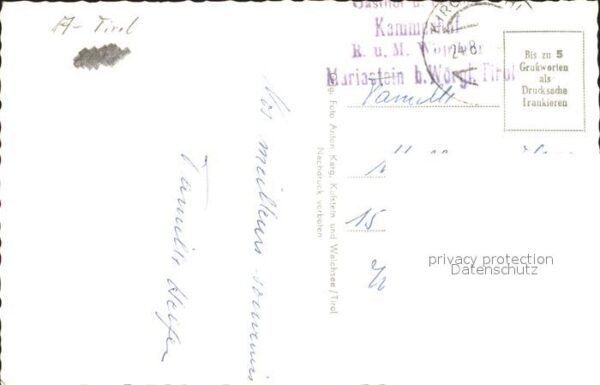 A - Tirol
Gasthof u.
Kammerhof
R. u. M.
Mariastein b. Wörgl, Tirol
24.8
Bis zu 5
Grußworten
als
Drucksache
frankieren
Famille
15
Foto Anton Karg, Kufstein und Walchsee/Tirol
Nachdruck verboten
Nos meilleurs souvenirs
Famille
privacy protection
Datenschutz